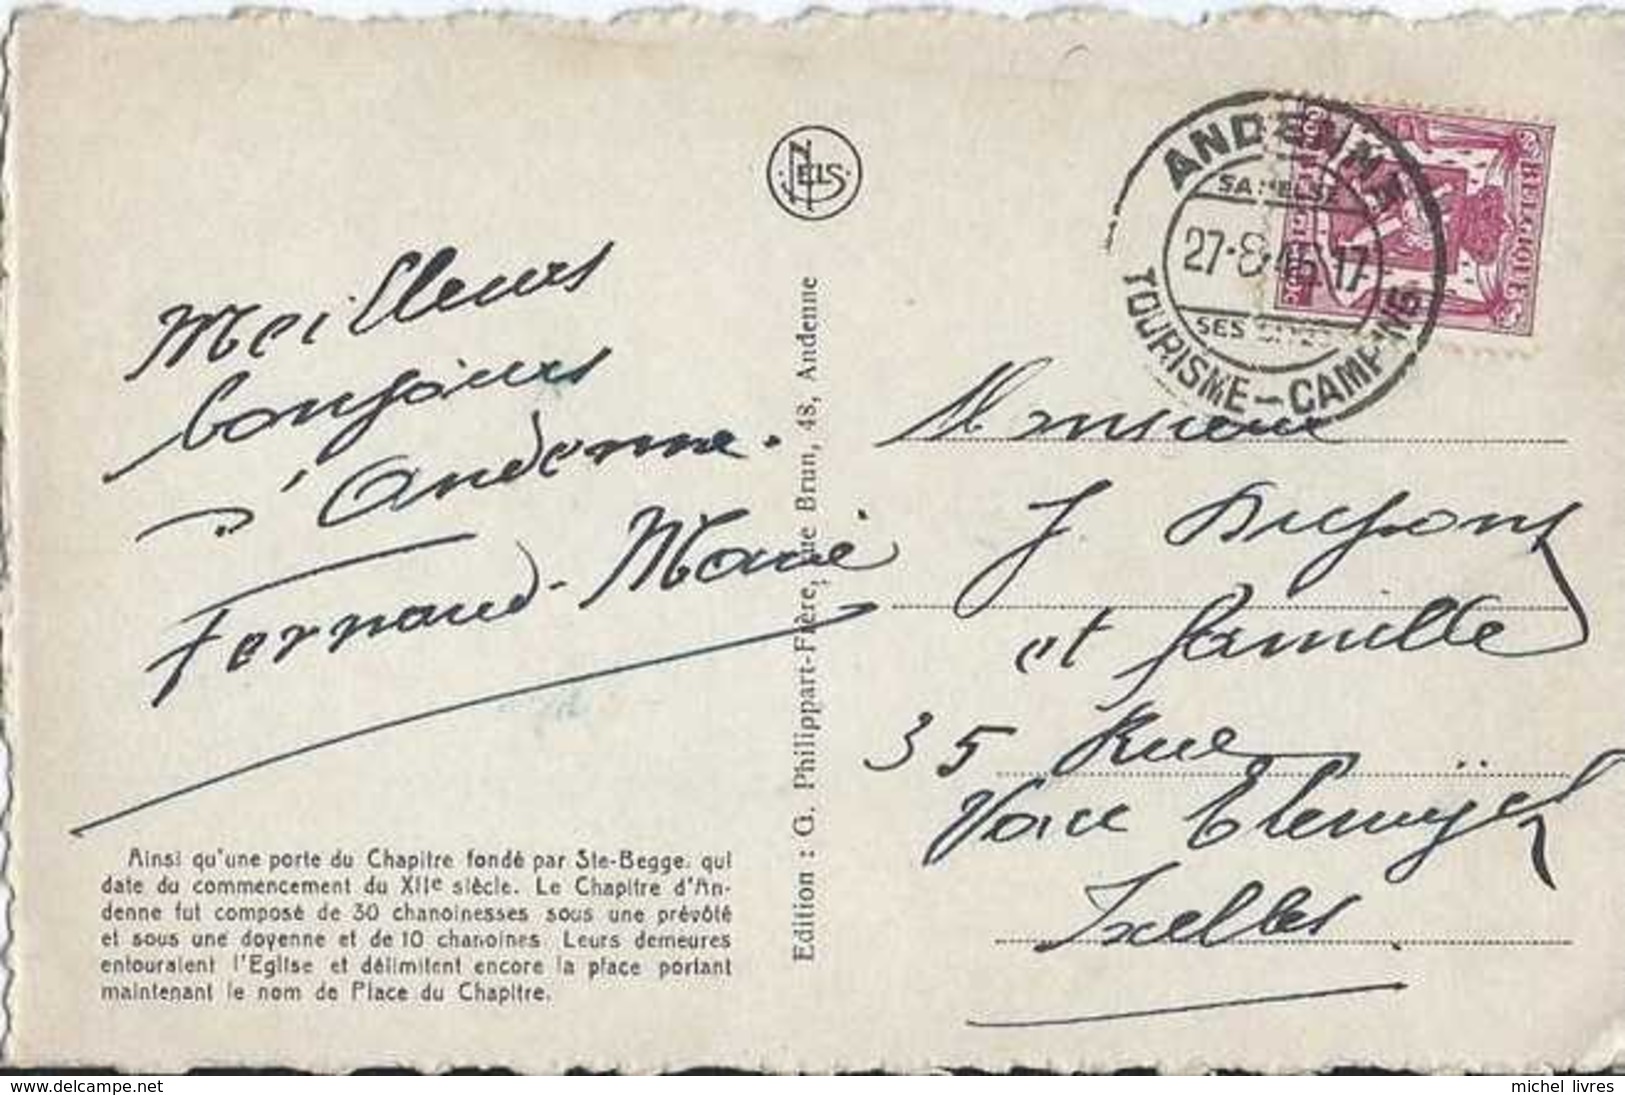 Meilleurs
bonjours
d'Andenne.
Fernand-Marie
Ainsi qu'une porte du Chapitre fondé par Ste-Begge, qui
date du commencement du XIIe siècle. Le Chapitre d'An-
denne fut composé de 30 chanoinesses sous une prévôté
et sous une doyenne et de 10 chanoines. Leurs demeures
entouraient l'Eglise et délimitent encore la place portant
maintenant le nom de Place du Chapitre.
NELS
Edition : G. Philippart-Frère, rue Brun, 48, Andenne
ANDENNE
27-8 17
TOURISME - CAMPING
BELGIQUE
Monsieur
J
et famille
35 Rue
Ixelles
www.delcampe.net
michel_livres